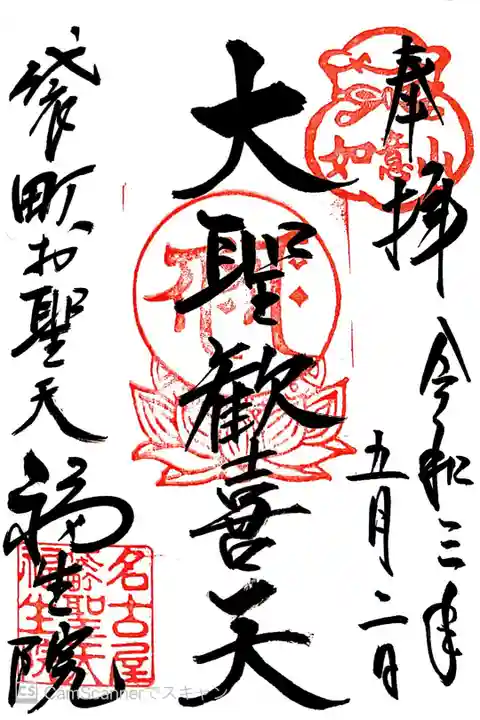 奉拝
令和三年
五月二日
如意山
大聖歓喜天
袋町お聖天
福生院
名古屋
袋町聖天
福生院
CamScannerでスキャン